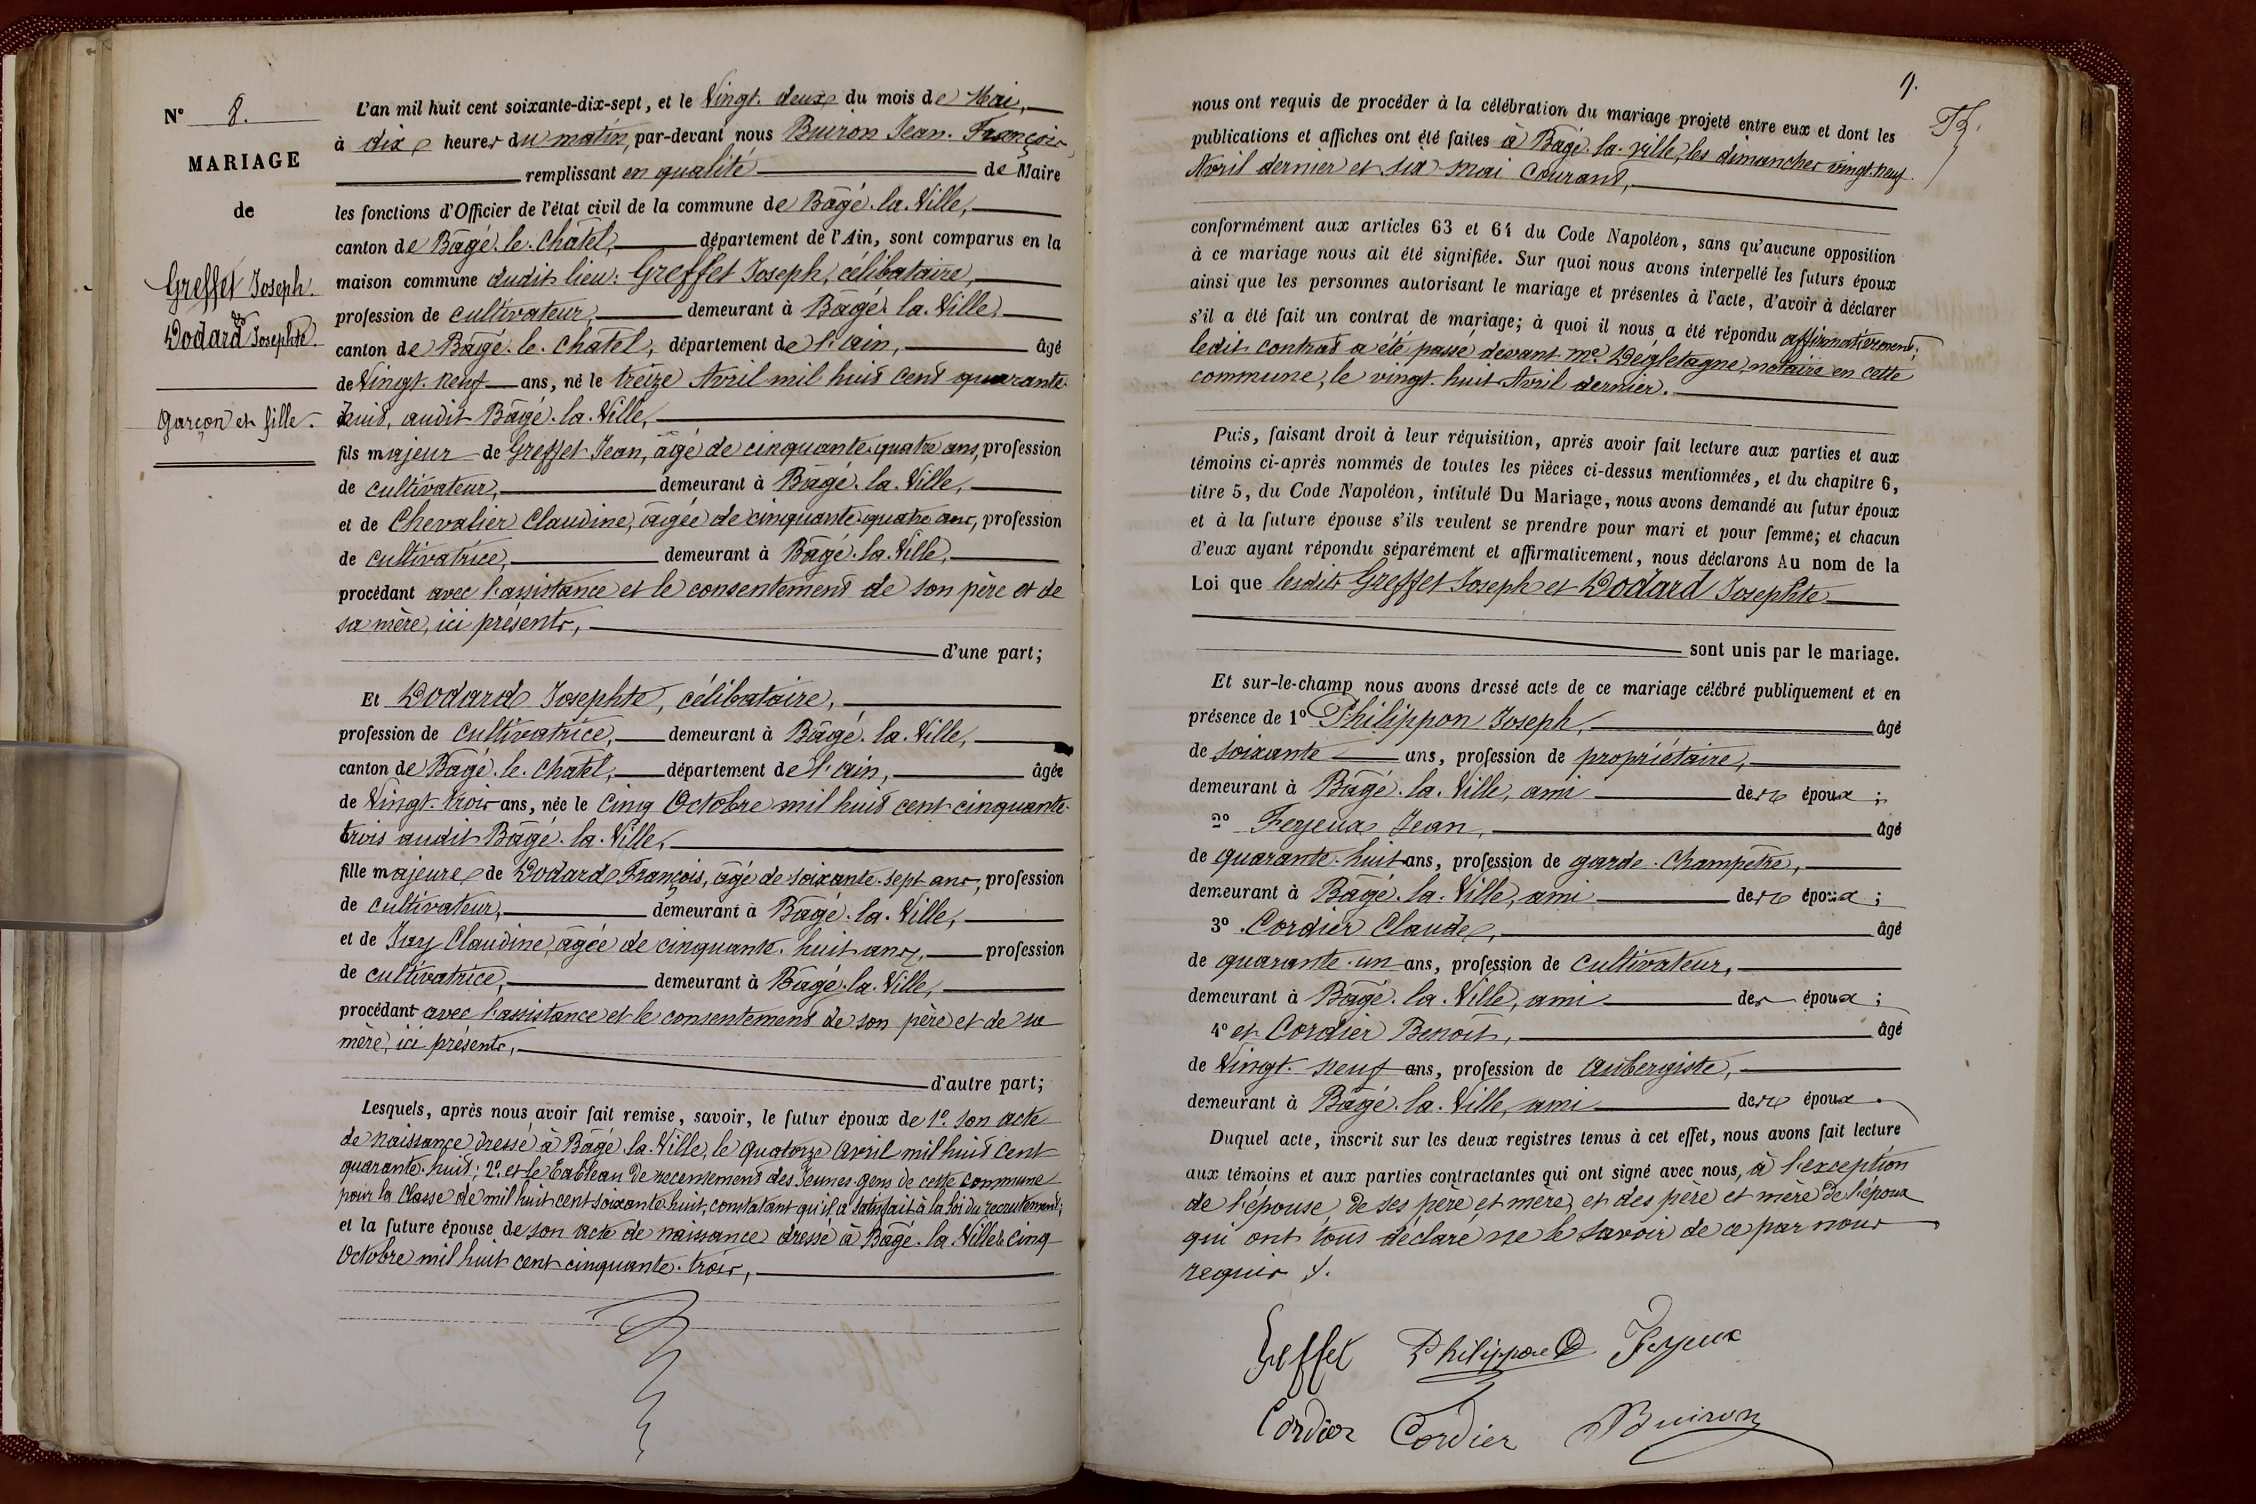 N° 8.
MARIAGE
de
Greffet Joseph.
et
Dodard Josephte.
Garçon et fille.
L'an mil huit cent soixante-dix-sept, et le Vingt-deux du mois de Mai,
à dix heures du matin, par-devant nous Buiron Jean-François,
remplissant en qualité de Maire
les fonctions d'Officier de l'état civil de la commune de Bâgé-la-Ville,
canton de Bâgé-le-Châtel, département de l'Ain, sont comparus en la
maison commune dudit lieu: Greffet Joseph, célibataire,
profession de cultivateur, demeurant à Bâgé-la-Ville,
canton de Bâgé-le-Châtel, département de l'ain, âgé
de Vingt-neuf ans, né le treize Avril mil huit cent quarante-
huit, audit Bâgé-la-Ville,
fils majeur de Greffet Jean, âgé de cinquante-quatre ans, profession
de cultivateur, demeurant à Bâgé-la-Ville,
et de Chevalier Claudine, âgée de cinquante-quatre ans, profession
de cultivatrice, demeurant à Bâgé-la-Ville,
procédant avec l'assistance et le consentement de son père et de
sa mère, ici présents,
d'une part;
Et Dodard Josephte, célibataire,
profession de cultivatrice, demeurant à Bâgé-la-Ville,
canton de Bâgé-le-Châtel, département de l'ain, âgée
de Vingt-trois ans, née le cinq Octobre mil huit cent cinquante-
trois audit Bâgé-la-Ville,
fille majeure de Dodard François, âgé de soixante-sept ans, profession
de cultivateur, demeurant à Bâgé-la-Ville,
et de Claudine, âgée de cinquante-huit ans, profession
de cultivatrice, demeurant à Bâgé-la-Ville,
procédant avec l'assistance et le consentement de son père et de sa
mère, ici présents,
d'autre part;
Lesquels, après nous avoir fait remise, savoir, le futur époux de 1° son acte
de naissance dressé à Bâgé-la-Ville, le quatorze avril mil huit cent
quarante-huit; 2° et le Tableau de recensement des Jeunes-gens de cette commune
pour la classe de mil huit cent soixante-huit, constatant qu'il a satisfait à la loi du recrutement;
et la future épouse de son acte de naissance dressé à Bâgé-la-Ville le cinq
Octobre mil huit cent cinquante-trois,
9.
nous ont requis de procéder à la célébration du mariage projeté entre eux et dont les
publications et affiches ont été faites à Bâgé-la-ville, les dimanches vingt-neuf
Avril dernier et six mai courant,
conformément aux articles 63 et 64 du Code Napoléon, sans qu'aucune opposition
à ce mariage nous ait été signifiée. Sur quoi nous avons interpellé les futurs époux
ainsi que les personnes autorisant le mariage et présentes à l'acte, d'avoir à déclarer
s'il a été fait un contrat de mariage; à quoi il nous a été répondu affirmativement;
ledit contrat a été passé devant Me. Dégletagne, notaire en cette
commune, le vingt-huit Avril dernier.
Puis, faisant droit à leur réquisition, après avoir fait lecture aux parties et aux
témoins ci-après nommés de toutes les pièces ci-dessus mentionnées, et du chapitre 6,
titre 5, du Code Napoléon, intitulé Du Mariage, nous avons demandé au futur époux
et à la future épouse s'ils veulent se prendre pour mari et pour femme; et chacun
d'eux ayant répondu séparément et affirmativement, nous déclarons Au nom de la
Loi que lesdits Greffet Joseph et Dodard Josephte
sont unis par le mariage.
Et sur-le-champ nous avons dressé acte de ce mariage célébré publiquement et en
présence de 1° Philippon Joseph, âgé
de soixante ans, profession de propriétaire,
demeurant à Bâgé-la-Ville, ami des époux;
2° Feyeux Jean, âgé
de quarante-huit ans, profession de garde-champêtre,
demeurant à Bâgé-la-Ville, ami des époux;
3° Cordier Claude, âgé
de quarante-un ans, profession de cultivateur,
demeurant à Bâgé-la-Ville, ami des époux;
4° et Cordier Benoit, âgé
de Vingt-neuf ans, profession de Aubergiste,
demeurant à Bâgé-la-Ville, ami des époux.
Duquel acte, inscrit sur les deux registres tenus à cet effet, nous avons fait lecture
aux témoins et aux parties contractantes qui ont signé avec nous, à l'exception
de l'épouse, de ses père et mère, et des père et mère de l'époux
qui ont tous déclaré ne le savoir de ce par nous
requis.
Greffet Philippon Feyeux
Cordier Cordier Buiron